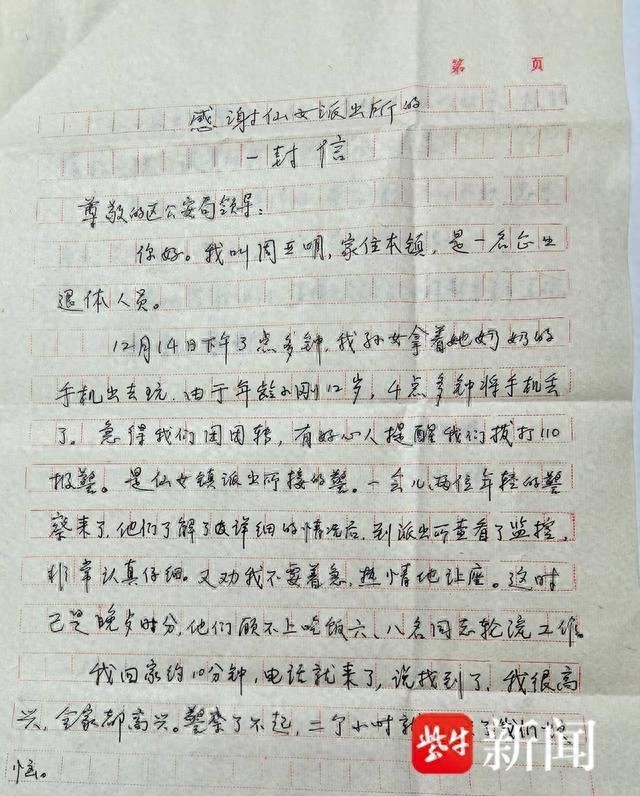 第 页
感谢仙女派出所的
一封信
尊敬的区公安局领导:
你好。我叫周正明,家住本镇,是一名企业
退休人员。
12月14日下午3点多钟,我孙女拿着她奶奶的
手机出去玩.由于年龄小刚12岁,4点多钟将手机丢
了。急得我们团团转,有好心人提醒我们拨打110
报警。是仙女镇派出所接的警。一会儿两位年轻的警
察来了,他们了解了详细的情况后,到派出所查看了监控,
非常认真仔细。又劝我不要着急,热情地让座。这时
已是晚歺时分,他们顾不上吃饭六、八名同志轮流工作。
我回家约10分钟,电话就来了,说找到了,我很高
兴,全家都高兴。警察了不起,二个小时就 了我们
恼。
紫牛新闻